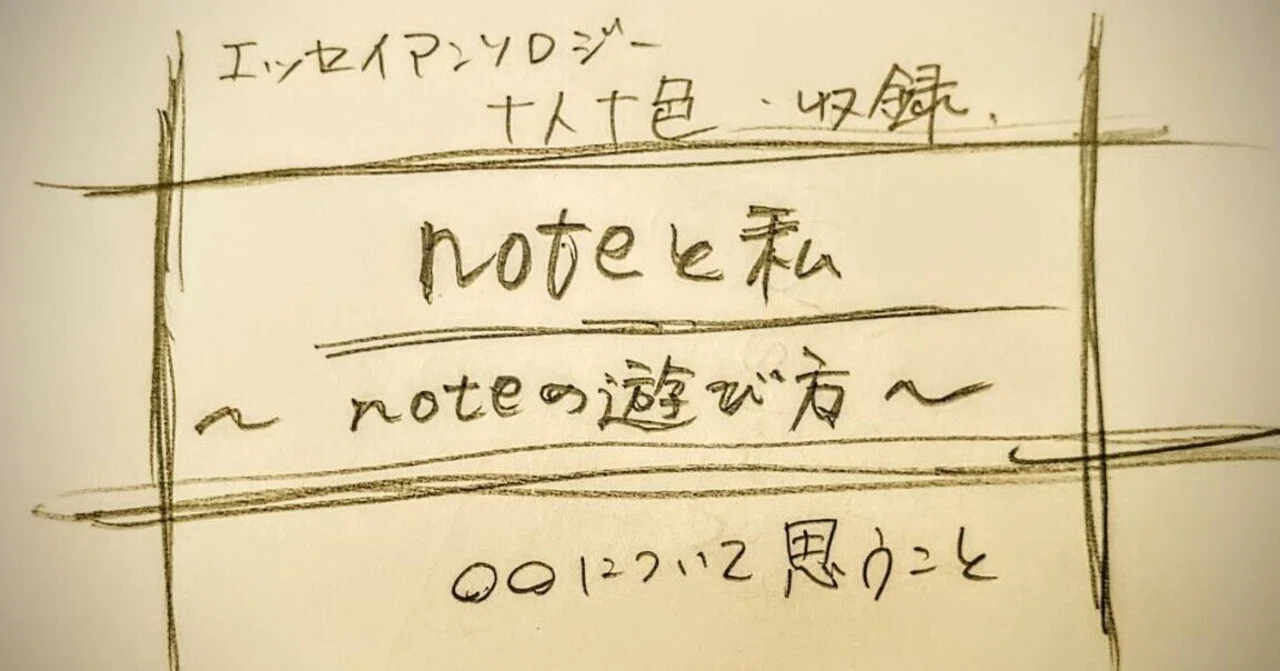 エッセイアンソロジー
十人十色・収録、
noteと私
～noteの遊び方～
〇〇について思うこと